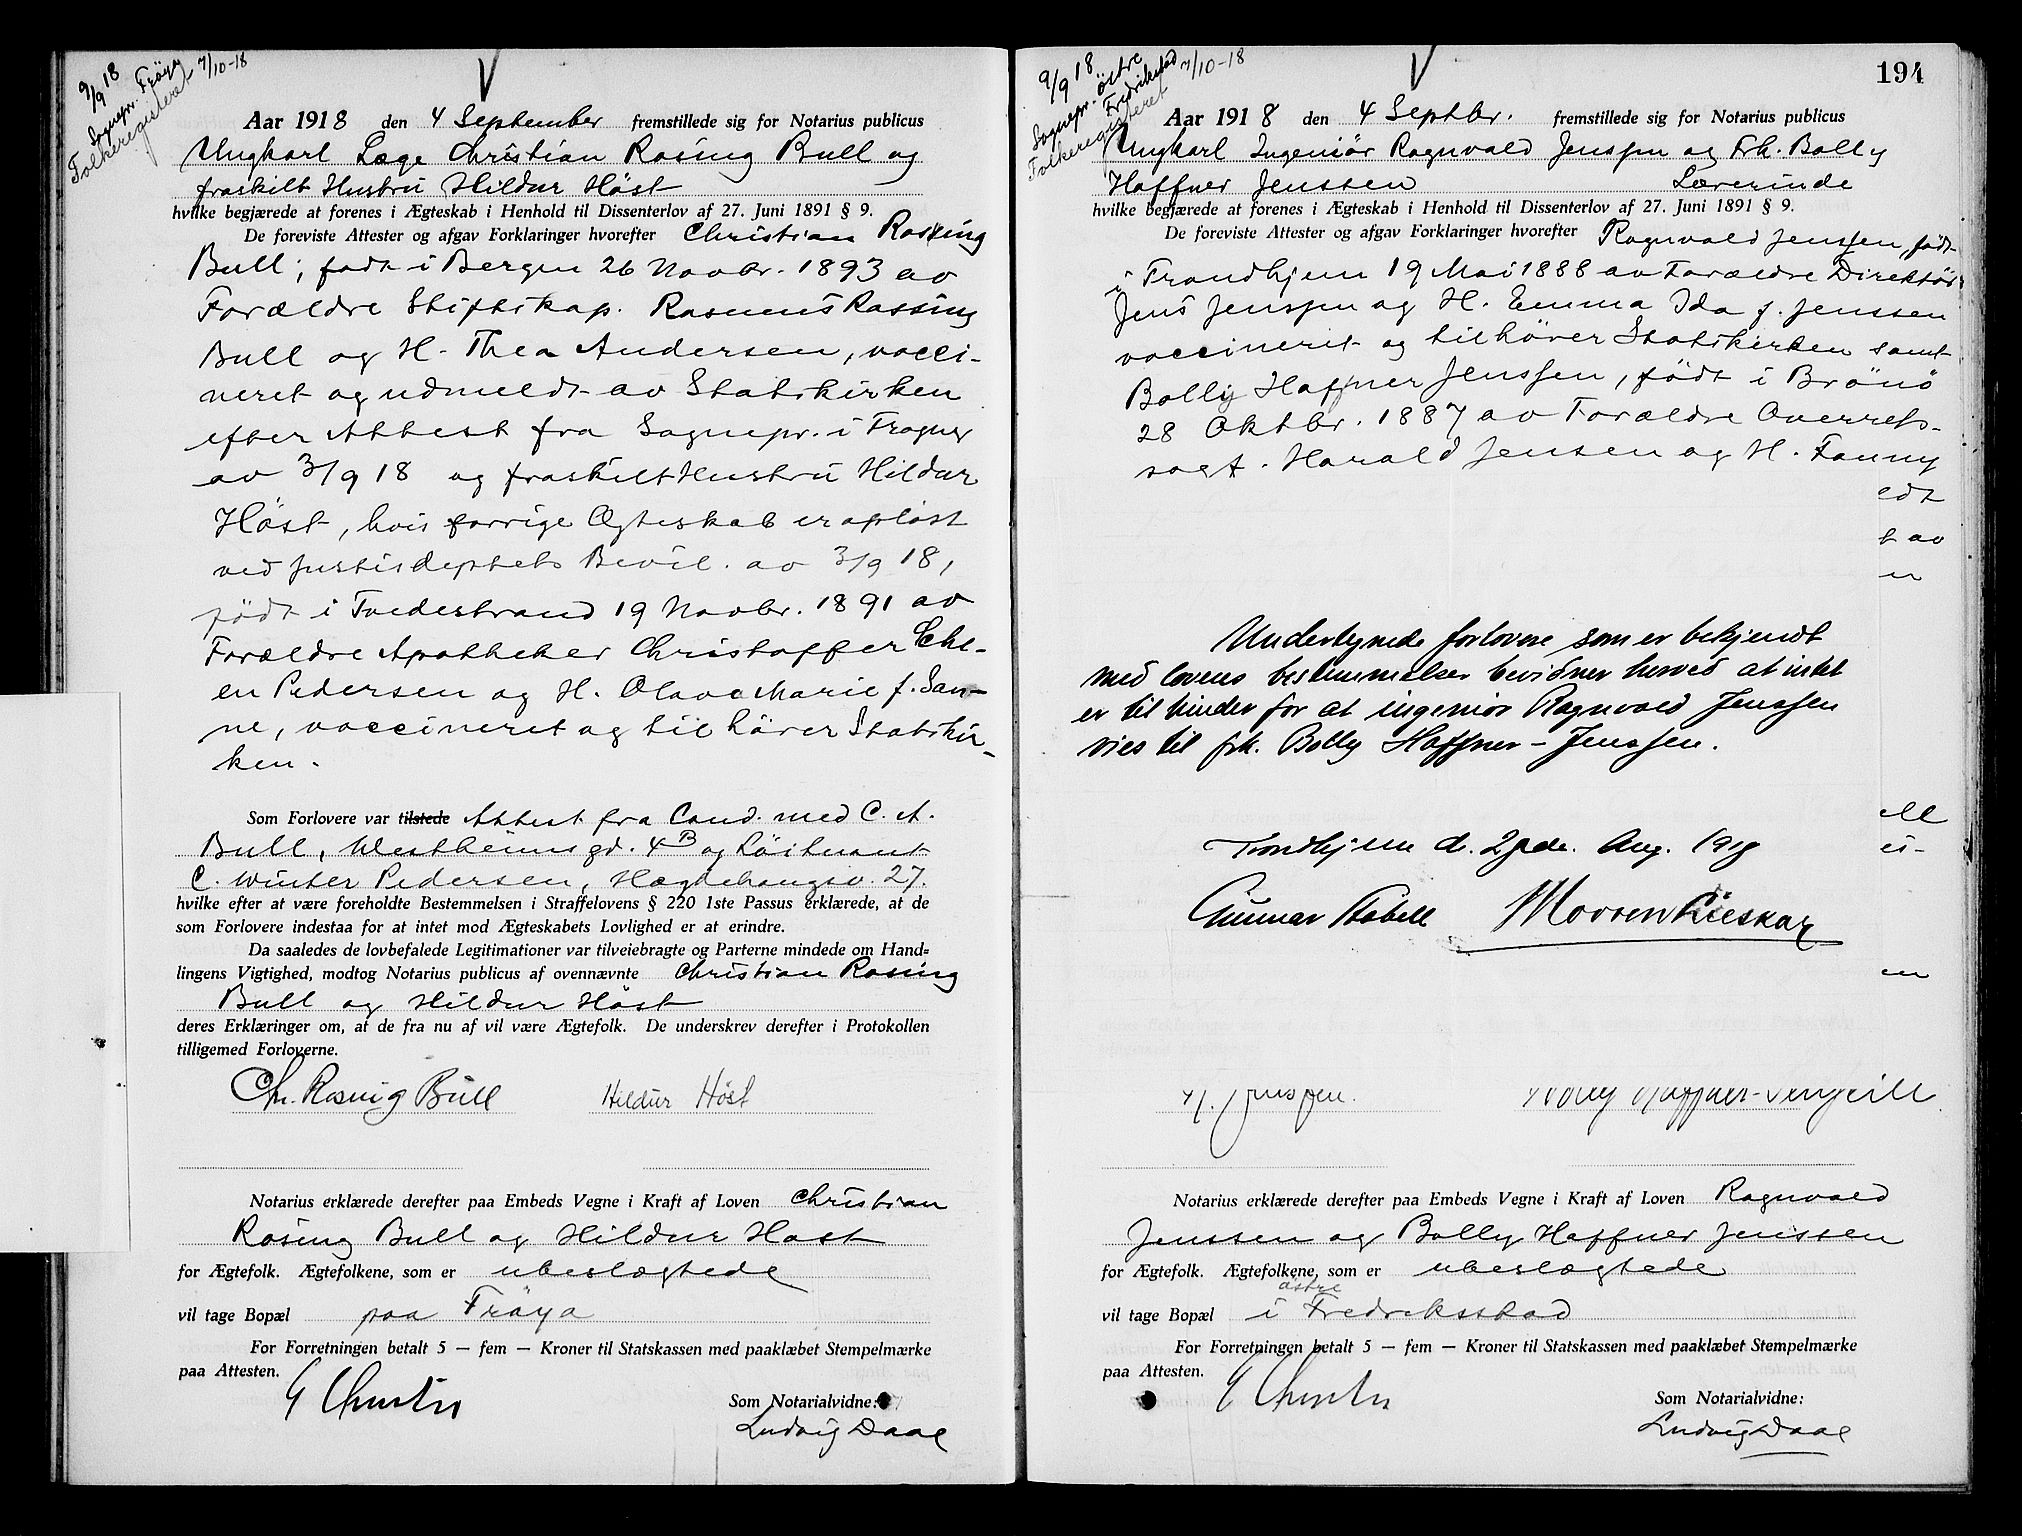 9/9 18
Sognepr. Frøya
Folkeregisteret 7/10-18
Aar 1918 den 4 September fremstillede sig for Notarius publicus
Ungkarl Læge Christian Rosing Bull og
fraskilt Hustru Hildur Höst
hvilke begjærede at forenes i Ægteskab i Henhold til Dissenterlov af 27. Juni 1891 § 9.
De foreviste Attester og afgav Forklaringer hvorefter Christian Rosing
Bull, født i Bergen 26 Novbr. 1893 av
Forældre Stiftskap. Rasmus Rossing
Bull og H. Thea Andersen, vacci-
neret og udmeldt av Statskirken
efter Attest fra Sognepr. i Frogner
av 3/9 18 og fraskilt Hustru Hildur
Höst, hvis forrige Ægteskab er opløst
ved Justisdeptets Bevil. av 3/9 18,
født i Tvedestrand 19 Novbr. 1891 av
Forældre Apotheker Christoffer Ehl-
en Pedersen og H. Olava Marie f. San-
ne, vaccineret og tilhører Statskir-
ken.
Som Forlovere var tilstede Attest fra Cand. med C. A.
Bull, Westheims gd. 4B og Løitnant
C. Winter Pedersen, Hægdehaugsv. 27.
hvilke efter at være foreholdte Bestemmelsen i Straffelovens § 220 1ste Passus erklærede, at de
som Forlovere indestaa for at intet mod Ægteskabets Lovlighed er at erindre.
Da saaledes de lovbefalede Legitimationer var tilveiebragte og Parterne mindede om Hand-
lingens Vigtighed, modtog Notarius publicus af ovennævnte Christian Rosing
Bull og Hildur Höst
deres Erklæringer om, at de fra nu af vil være Ægtefolk. De underskrev derefter i Protokollen
tilligemed Forloverne.
Chr. Rosing Bull Hildur Höst
Notarius erklærede derefter paa Embeds Vegne i Kraft af Loven Christian
Rosing Bull og Hildur Høst
for Ægtefolk. Ægtefolkene, som er ubeslægtede
vil tage Bopæl paa Frøya
For Forretningen betalt 5 — fem — Kroner til Statskassen med paaklæbet Stempelmærke
paa Attesten.
Som Notarialvidne:
Ludvig Daae
194
9/9 18
Sognepr. Østre
Fredrikstad
Folkeregisteret 7/10-18
Aar 1918 den 4 Septbr. fremstillede sig for Notarius publicus
Ungkarl Ingeniør Ragnvald Jenssen og Frk. Bolly
Haffner Jenssen Lærerinde
hvilke begjærede at forenes i Ægteskab i Henhold til Dissenterlov af 27. Juni 1891 § 9.
De foreviste Attester og afgav Forklaringer hvorefter Ragnvald Jenssen, født
i Trondhjem 19 Mai 1888 av Forældre Direktör
Jens Jenssen og H. Emma Ida f. Jenssen
vaccineret og tilhører Statskirken samt
Bolly Haffner Jenssen, född i Brönö
28 Oktbr. 1887 av Forældre Overrets-
sagf. Harald Jensen og H. Fanny
edt
t av
n
Undertegnede forlovere som er bekjendt
med lovens bestemmelser bevidner herved at intet
er til hinder for at ingeniør Ragnvald Jenssen
vies til frk. Bolly Haffner-Jenssen.
ell
ei-
Trondhjem d. 29de. Aug. 1918
Gunnar Stabell
en
Notarius erklærede derefter paa Embeds Vegne i Kraft af Loven Ragnvald
Jenssen og Bolly Haffner Jenssen
for Ægtefolk. Ægtefolkene, som er ubeslægtede
østre
vil tage Bopæl i Fredriksstad
For Forretningen betalt 5 — fem — Kroner til Statskassen med paaklæbet Stempelmærke
paa Attesten.
Som Notarialvidne:
Ludvig Daae